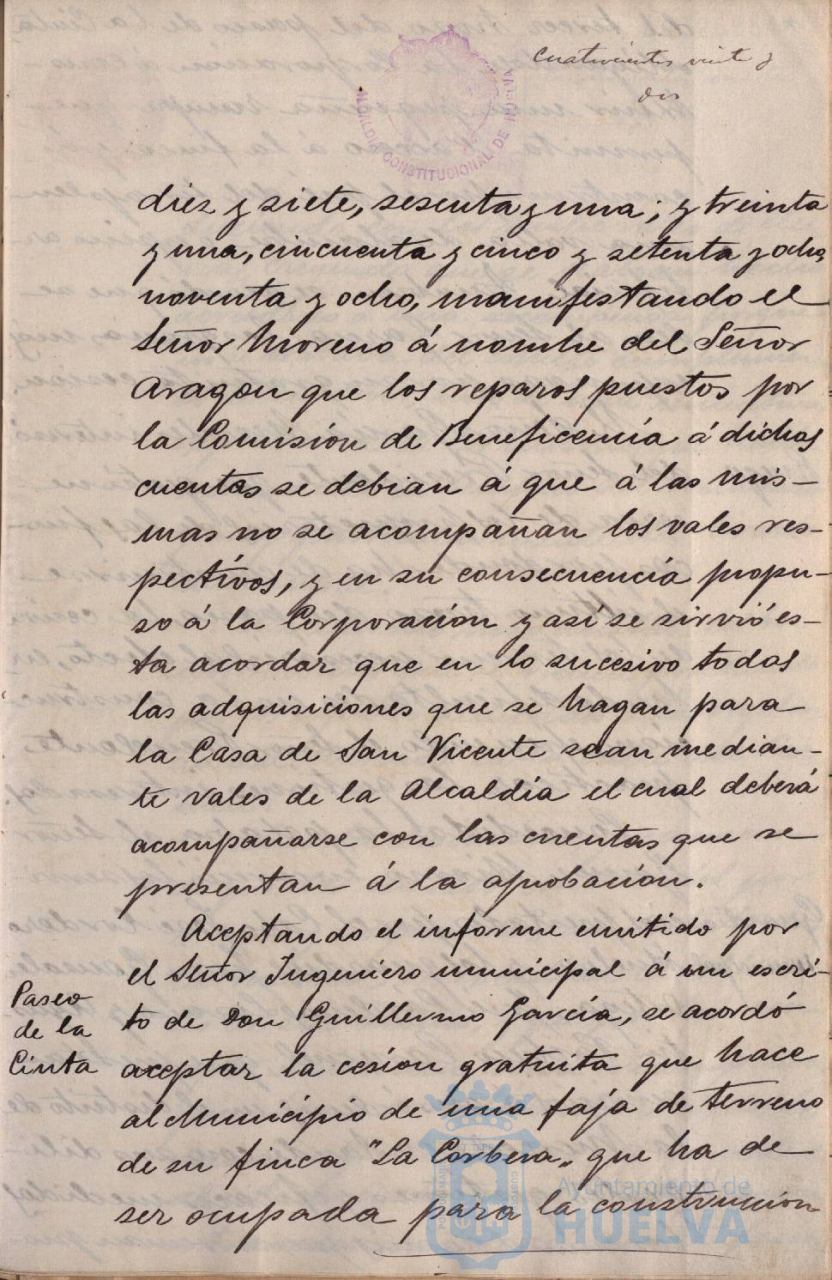 Cuatrocientos veinte y
dos
ALCALDIA CONSTITUCIONAL DE HUELVA
diez y siete, sesenta y una; y treinta
y una, cincuenta y cinco y setenta y ocho,
noventa y ocho, manifestando el
Señor Moreno á nombre del Señor
Aragon que los reparos puestos por
la Comisión de Beneficencia á dichas
cuentas se debian á que á las mis-
mas no se acompañan los vales res-
pectivos, y en su consecuencia propu-
so á la Corporación y así se sirvió es-
ta acordar que en lo sucesivo todas
las adquisiciones que se hagan para
la Casa de San Vicente sean median-
te vales de la Alcaldía el cual deberá
acompañarse con las cuentas que se
presentan á la aprobación.
Aceptando el informe emitido por
el Señor Ingeniero municipal á un escri-
Paseo
de la
Cinta
to de Don Guillermo García, se acordó
aceptar la cesion gratuita que hace
al Municipio de una faja de terreno
de su finca "La Corbera" que ha de
ser ocupada para la construccion
Ayuntamiento de
HUELVA